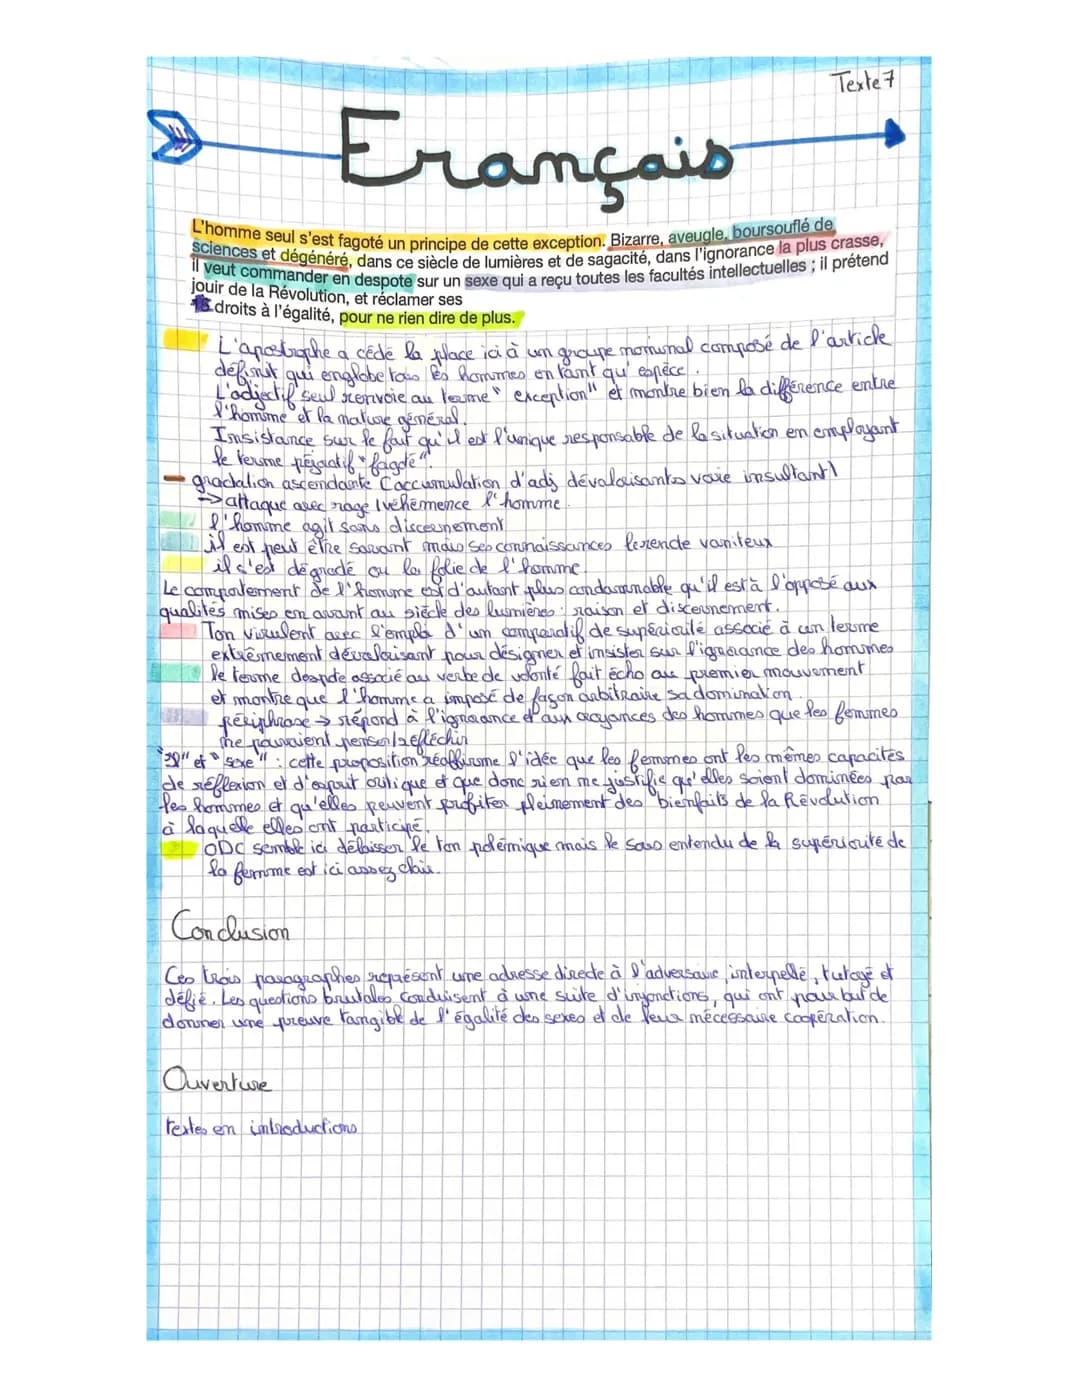 Texte 7
Français
L'homme seul s'est fagoté un principe de cette exception. Bizarre, aveugle, boursouflé de
sciences et dégénéré, dans ce siècle de lumières et de sagacité, dans l'ignorance la plus crasse,
il veut commander en despote sur un sexe qui a reçu toutes les facultés intellectuelles ; il prétend
jouir de la Révolution, et réclamer ses
droits à l'égalité, pour ne rien dire de plus.
L'apostrophe a cédé la place ici à un groupe nominal composé de l'article
définit qui englobe tous les hommes en tant qu'espèce.
L'adjectif seul renvoie au terme "exception" et montre bien la différence entre
l'homme et la nature général.
Insistance sur le fait qu'il est l'unique responsable de la situation en employant
le terme péjoratif "fagoté".
gradation ascendante (accumulation d'adj dévalorisants voire insultant)
=> attaque avec rage / véhémence l'homme.
l'homme agit sans discernement
il est peut être savant mais ses connaissances le rende vaniteux
il s'est dégradé ou la folie de l'homme.
Le comportement de l'homme est d'autant plus condamnable qu'il est à l'opposé aux
qualités mises en avant au siècle des lumières : raison et discernement.
Ton virulent avec l'emploi d'un comparatif de supériorité associé à un terme
extrêmement dévalorisant pour désigner et insister sur l'ignorance des hommes
le terme despote associé au verbe de volonté fait écho au premier mouvement
et montre que l'homme a imposé de façon arbitraire sa domination.
périphrase → répond à l'ignorance et aux croyances des hommes que les femmes
ne pouvaient penser/réfléchir
"Il" et "sexe" : cette proposition réaffirme l'idée que les femmes ont les mêmes capacités
de réflexion et d'esprit critique et que donc rien ne justifie qu'elles soient dominées par
les hommes et qu'elles peuvent profiter pleinement des bienfaits de la Révolution
à laquelle elles ont participé.
ODC semble ici délaisser le ton polémique mais le sous entendu de la supériorité de
la femme est ici assez clair.
Conclusion
Ces trois paragraphes représent une adresse directe à l'adversaire, interpellé, tutoyé et
défié. Les questions brutales conduisent à une suite d'injonctions, qui ont pour but de
donner une preuve tangible de l'égalité des sexes et de leur nécessaire coopération.
Ouverture
textes en introductions